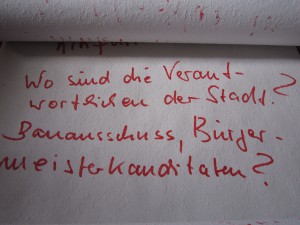 Wo sind die Verant-
wortlichen der Stadt?
Bauausschuss, Bürger-
meisterkanditaten?